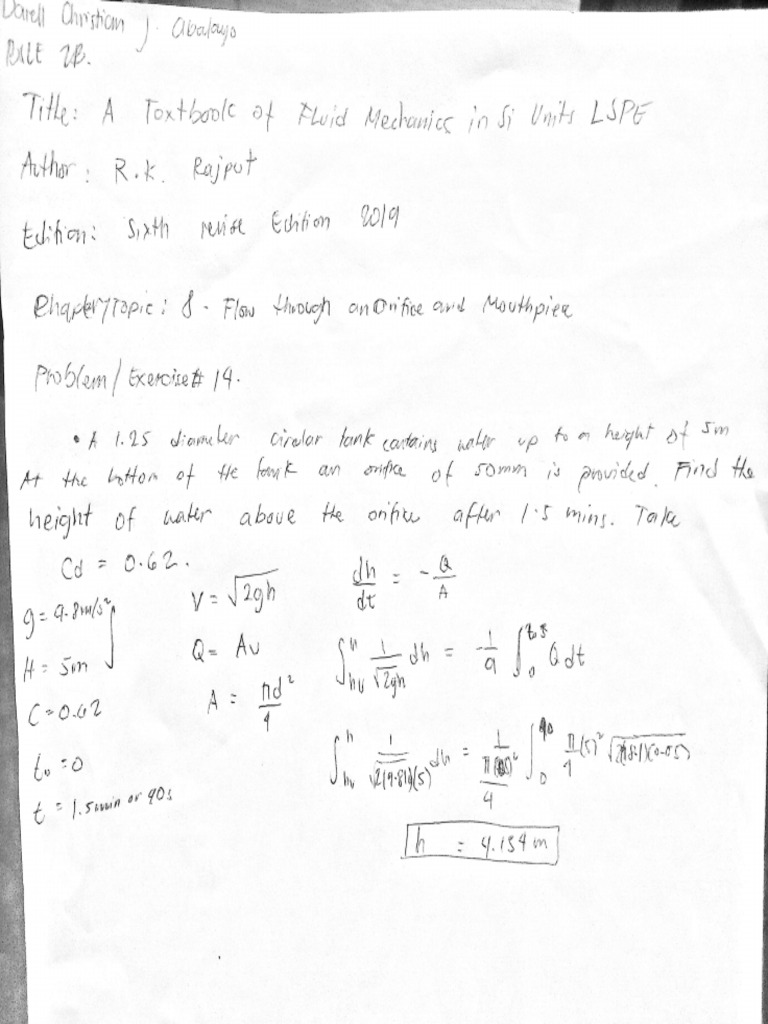 Darell Christian J. Abalayo
2B.
Title: A Textbook of Fluid Mechanics in Si Units LSPE
Author: R.K. Rajput
Edition: Sixth revise Edition 2019
Chapter/Topic: 8 - Flow through an Orifice and Mouthpiece
Problem/Exercise# 14.
• A 1.25 diameter circular tank contains water up to a height of 5m
At the bottom of the tank an orifice of 50mm is provided. Find the
height of water above the orifice after 1.5 mins. Take
Cd = 0.62.
g = 9.8m/s²
H = 5m
C = 0.62
t₀ = 0
t = 1.5min or 90s
V = √2gh
Q = Av
A = πd²/4
dh/dt = -Q/A
∫ 1/√2gh dh = -1/a ∫ Q dt
h = 4.154m